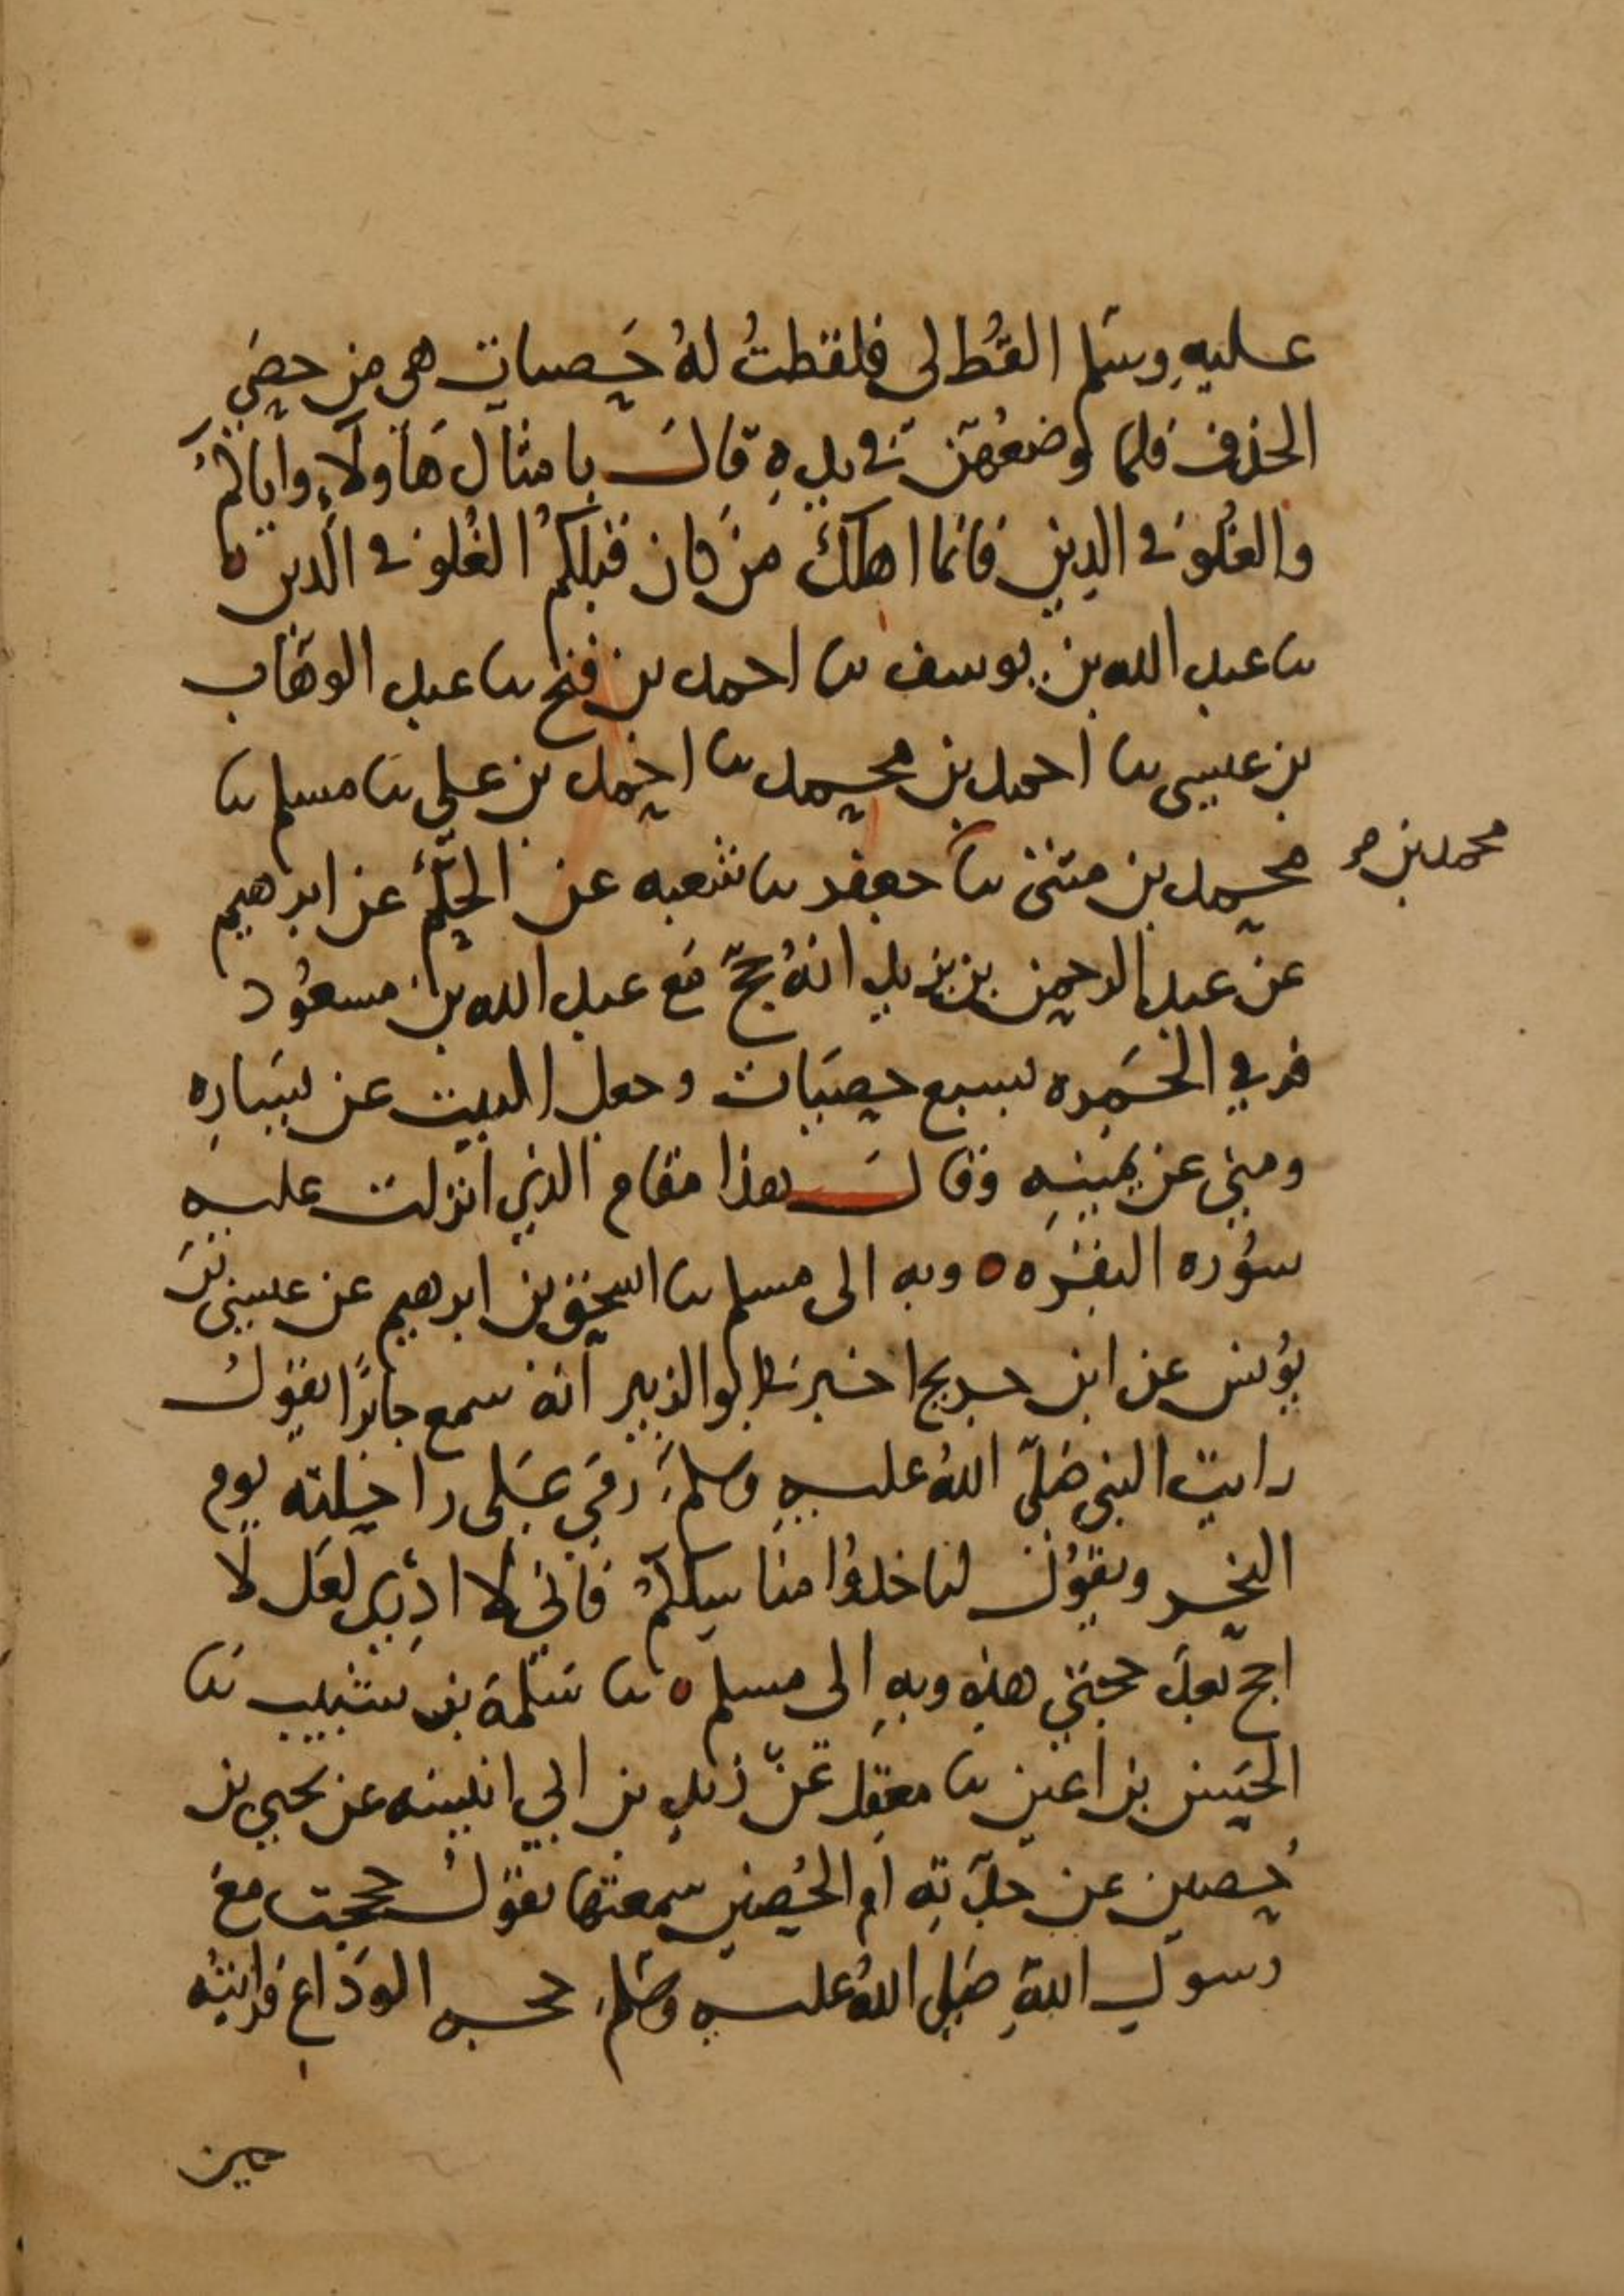 عليهِ وسَلم القُط لى فلقطتُ لهُ حَصيات هى من حصَى
الخذف فلما وضعُهنّ فى يدهِ قالَ بامثال هَاولآءِ واياكُم
والغُلوَ فى الدين فانما اهلكَ منَ كان قبلكُم الغُلوَ فى الدين ه
ثنا عبد الله بن يوسف ثنا احمد بن فتح ثنا عبد الوهّاب
بن عيسى ثنا احمد بن محمد ثنا احمد بن على ثنا مسلم ثنا
محمد بن مثنى ثنا جعفر ثنا شعبه عن الحكَم عن ابرهيم
محمد بن
عن عبد الرحمن بن يزيد انهُ حجّ مَع عبد الله بن مسعُود
فرمي الجَمره بسبع حصَيات وجعل البيت عن يسَارِه
ومنى عن يمينِه وقالَ هذا مقام الذي انزلت عليه
سُوره البقَره ه وبه الى مسلم ثنا اسحق بن ابرهيم عن عيسى بن
يُونس عن ابن جريج اخبرنى ابو الزبير انهُ سمع جابرًا يقول
رايت النبى صَلىّ اللهُ عليهِ وسلمَ رمَى عَلى راحلته يوم
النحر ويقُول لنا خذُوا مناسككُم فانى لا ادْرى لعَل لا
احج بعدَ حجتى هذه وبهِ الى مسلم ه ثنا سَلمة بن شبيب ثنا
الحَسن بن اعين ثنا معقِل عَنْ زيدِ بن ابي انيسه عن يحيي بن
حُصين عن جدّتِه امِ الحُصين سمعتها تقولُ حججت معَ
رسول اللهِ صَلى اللهُ عليهِ وسَلم حجه الودَاع فرايتُه
حين